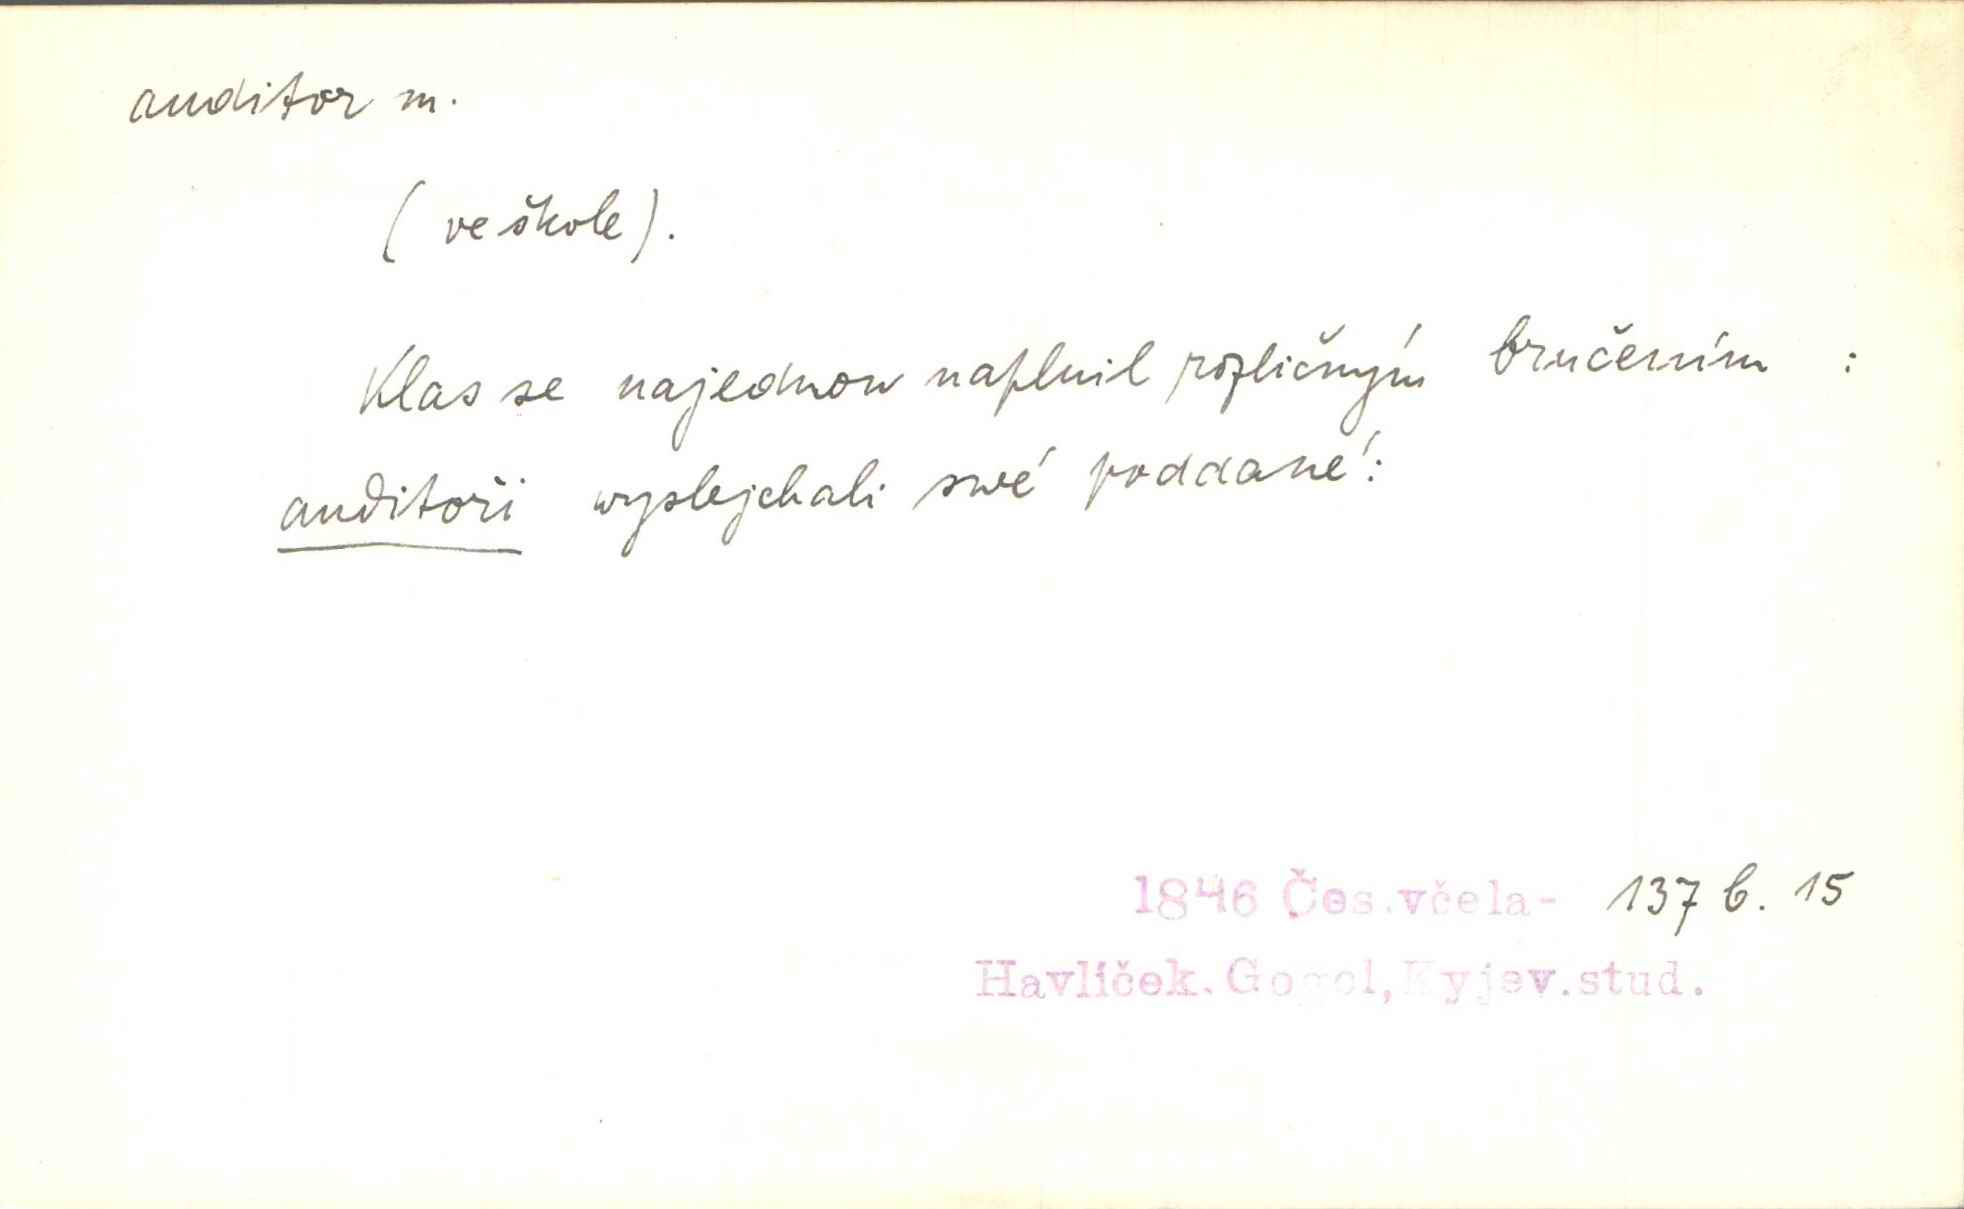 auditor m.
(ve škole).
Klas se najednow naplnil rozličným bručením :
auditoři wyslejchali swé poddané:
1846 Čes.včela- 137 b. 15
Havlíček. Gogol, Kyjev.stud.